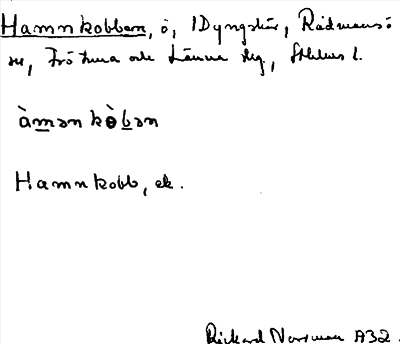 Hamnkobben, ö, Dyngskär, Rådmansö
sn, Frötuna och Länna skg, Sthlms l.
àmən kòbən
Hamnkobb, ek.
Rickard Norrman A32.